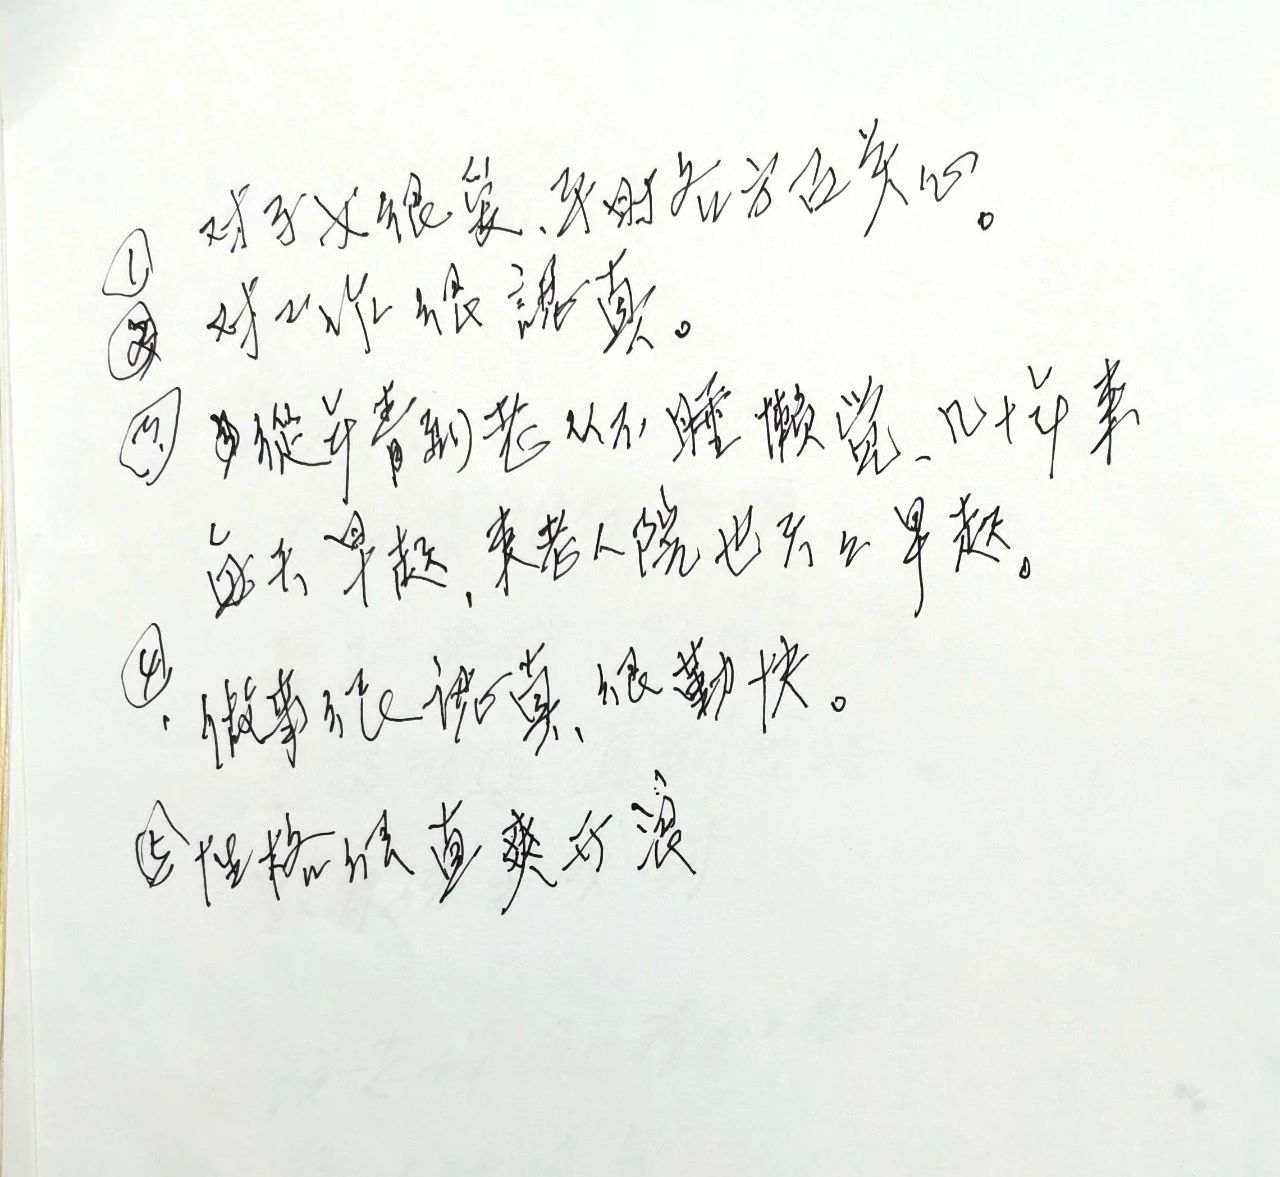 ① 对子女很爱、平时各方面关心。
② 对工作很認真。
③ 從年青到老从不睡懒觉、几十年来
每天早起，来老人院也天天早起。
④ 做事很認真、很勤快。
⑤ 性格很直爽开浪